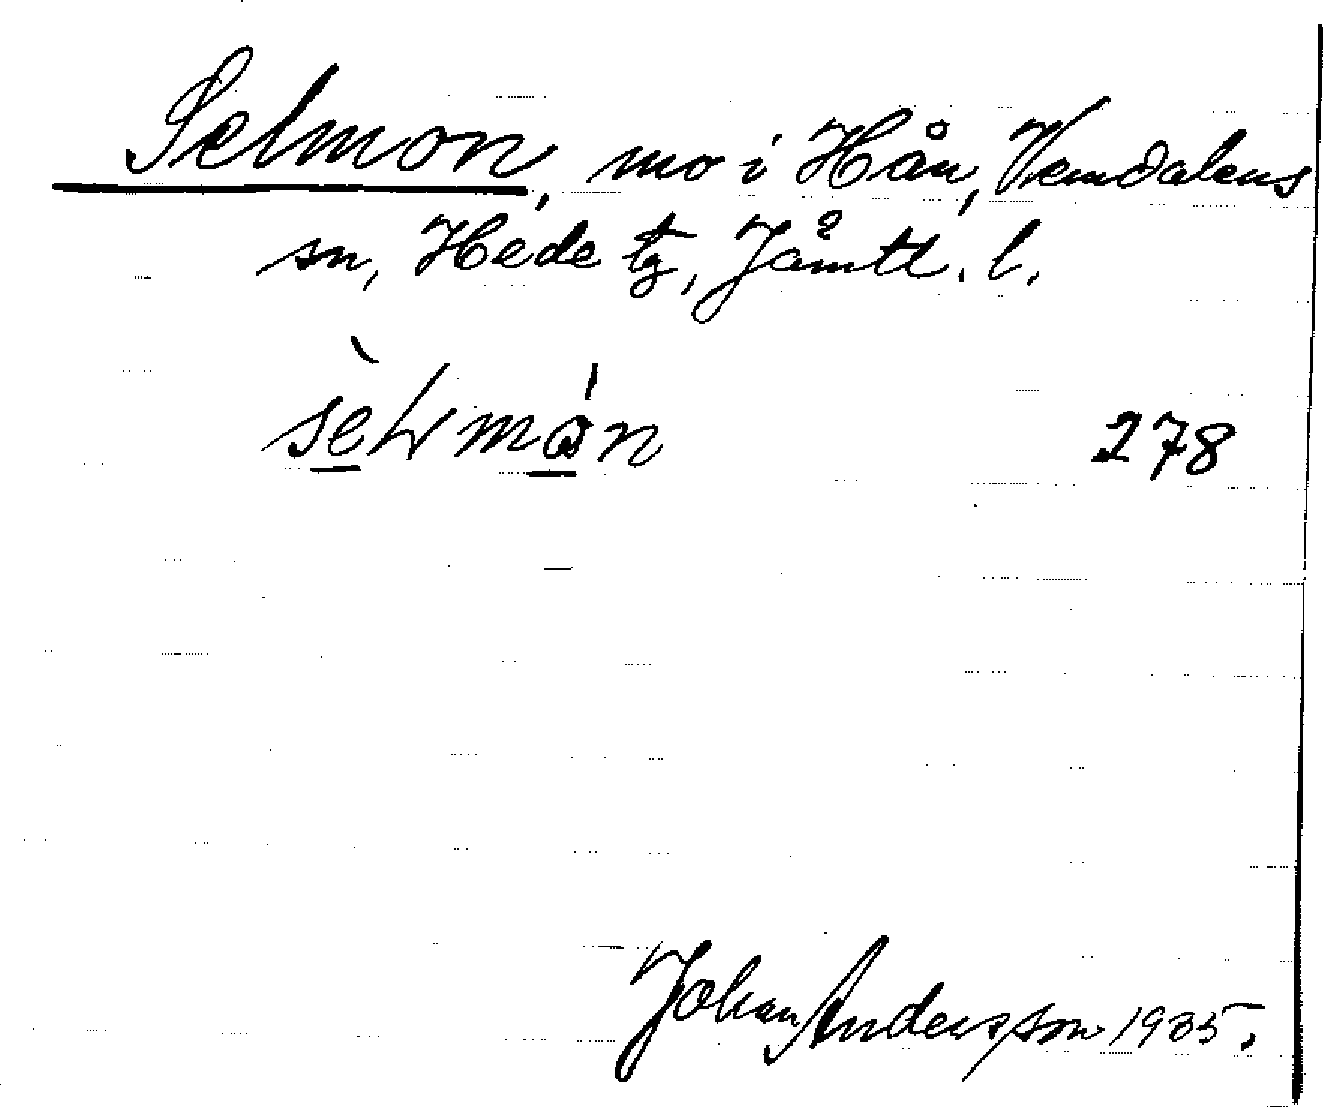 Selmon, mo i Hån, Vemdalens
sn, Hede tg, Jämtl. l.
278
Johan Andersson 1935.